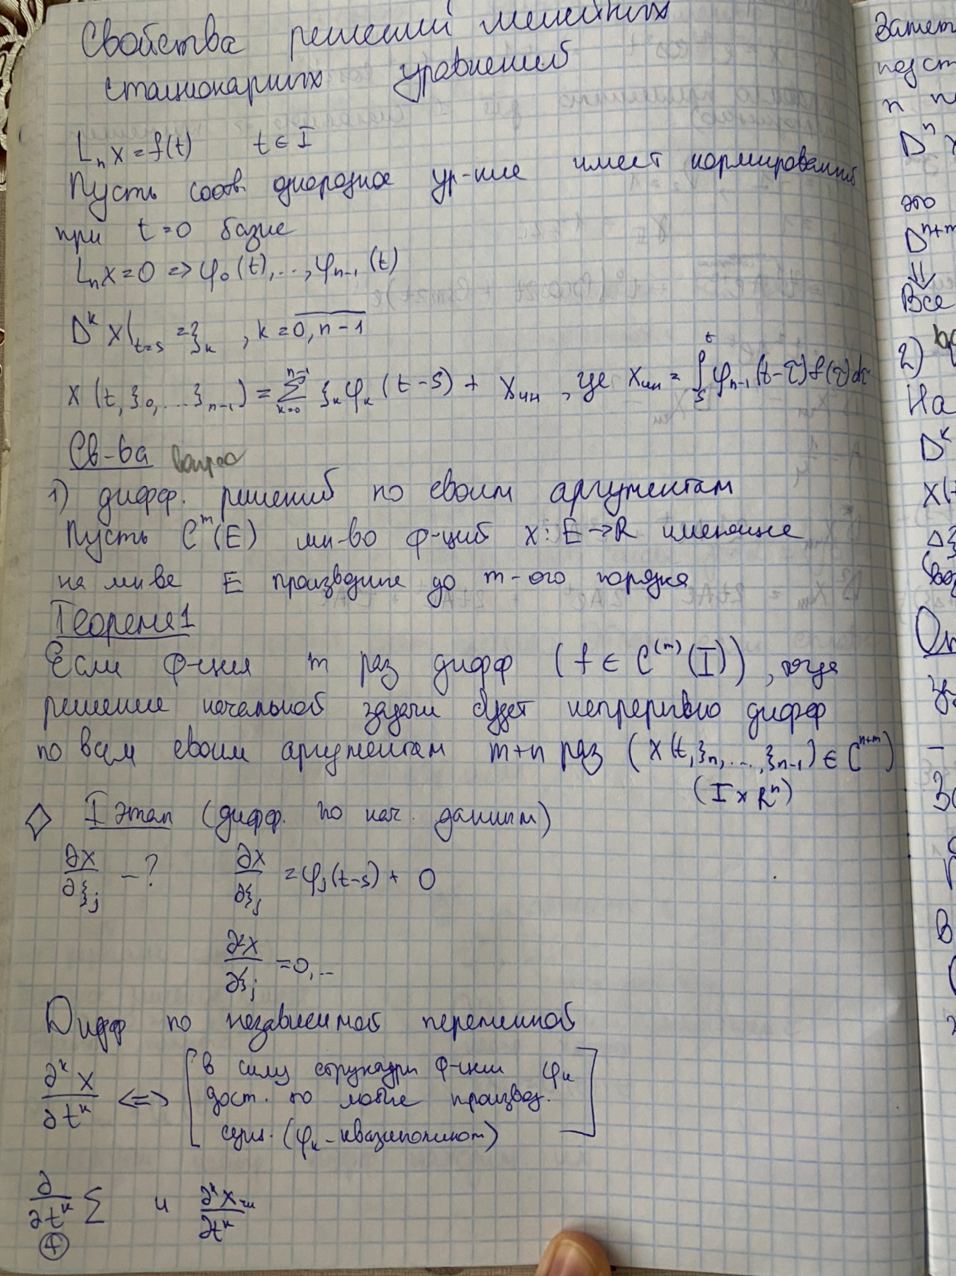 Свойства решений линейных
стационарных уравнений
Lₙx = f(t)   t ∈ I
Пусть соотв. однородное ур-ние имеет нормированный
при t=0 базис
Lₙx=0 => φ₀(t),..,φₙ₋₁(t)
Dᵏx|ₜ₌ₛ = ξₖ , k = 0,n-1
x(t,ξ₀,...ξₙ₋₁) = Σₖ₌₀ⁿ⁻¹ ξₖφₖ(t-s) + xчн , где xчн = ∫ₛᵗ φₙ₋₁(t-τ)f(τ)dτ
Св-ва вопрос
1) дифф. решений по своим аргументам
Пусть Cᵐ(E) мн-во ф-ций x: E→R имеющие
на мн-ве E производные до m-ого порядка
Теорема 1
Если ф-ция m раз дифф (f ∈ C⁽ᵐ⁾(I)), тогда
решение начальной задачи будет непрерывно дифф
по всем своим аргументам m+n раз (x(t,ξₙ,...,ξₙ₋₁) ∈ Cⁿ⁺ᵐ)
(I×Rⁿ)
◇ I этап (дифф. по нач. данным)
∂x/∂ξⱼ - ?   ∂x/∂ξⱼ = φⱼ(t-s) + 0
∂ᵏx/∂ξⱼ = 0,..
Дифф по независимой переменной
∂ᵏx/∂tᵏ <=> [в силу структуры ф-ции φₖ
дост. по производ.
сущ. (φₖ - квазиполином)]
∂/∂tᵏ Σ и ∂ᵏxчн/∂tᵏ
4
Замет
подст
n
Dⁿ
это
Dⁿ⁺ᵐ
⇓
Все
2)
На
Dᵏ
x(